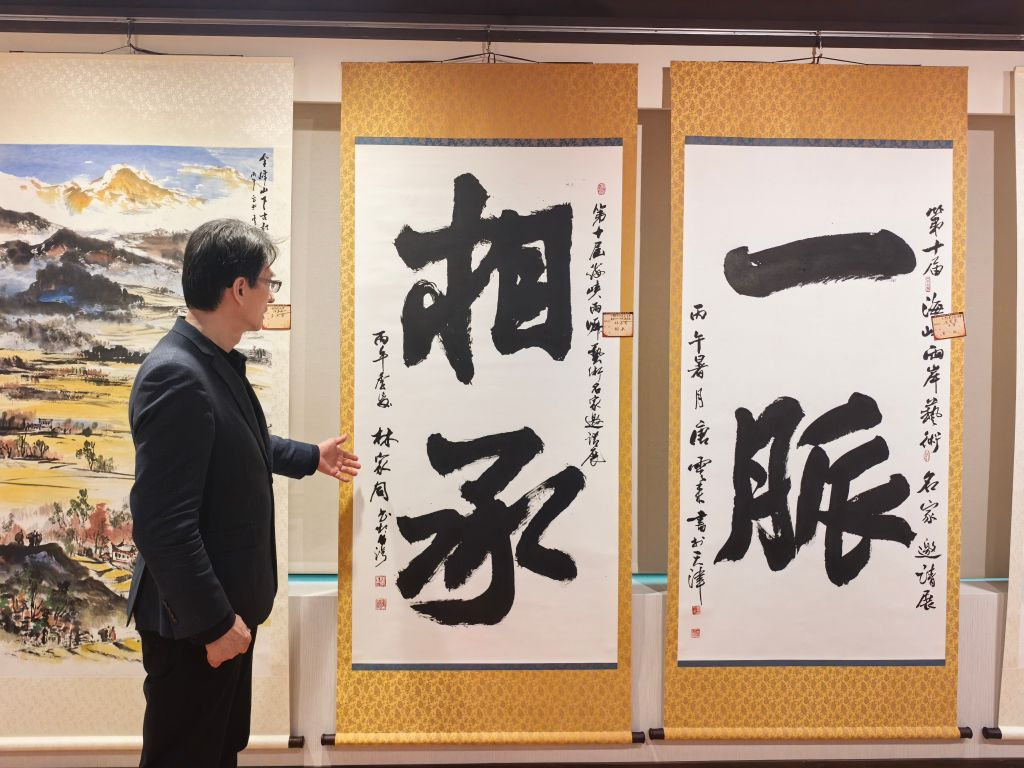 第十届海兩岸藝術名家邀請展
一脈
丙午暑月唐雲書於天津
第十屆海峽兩岸藝術名家邀請展
相承
丙午 林家同書於台灣